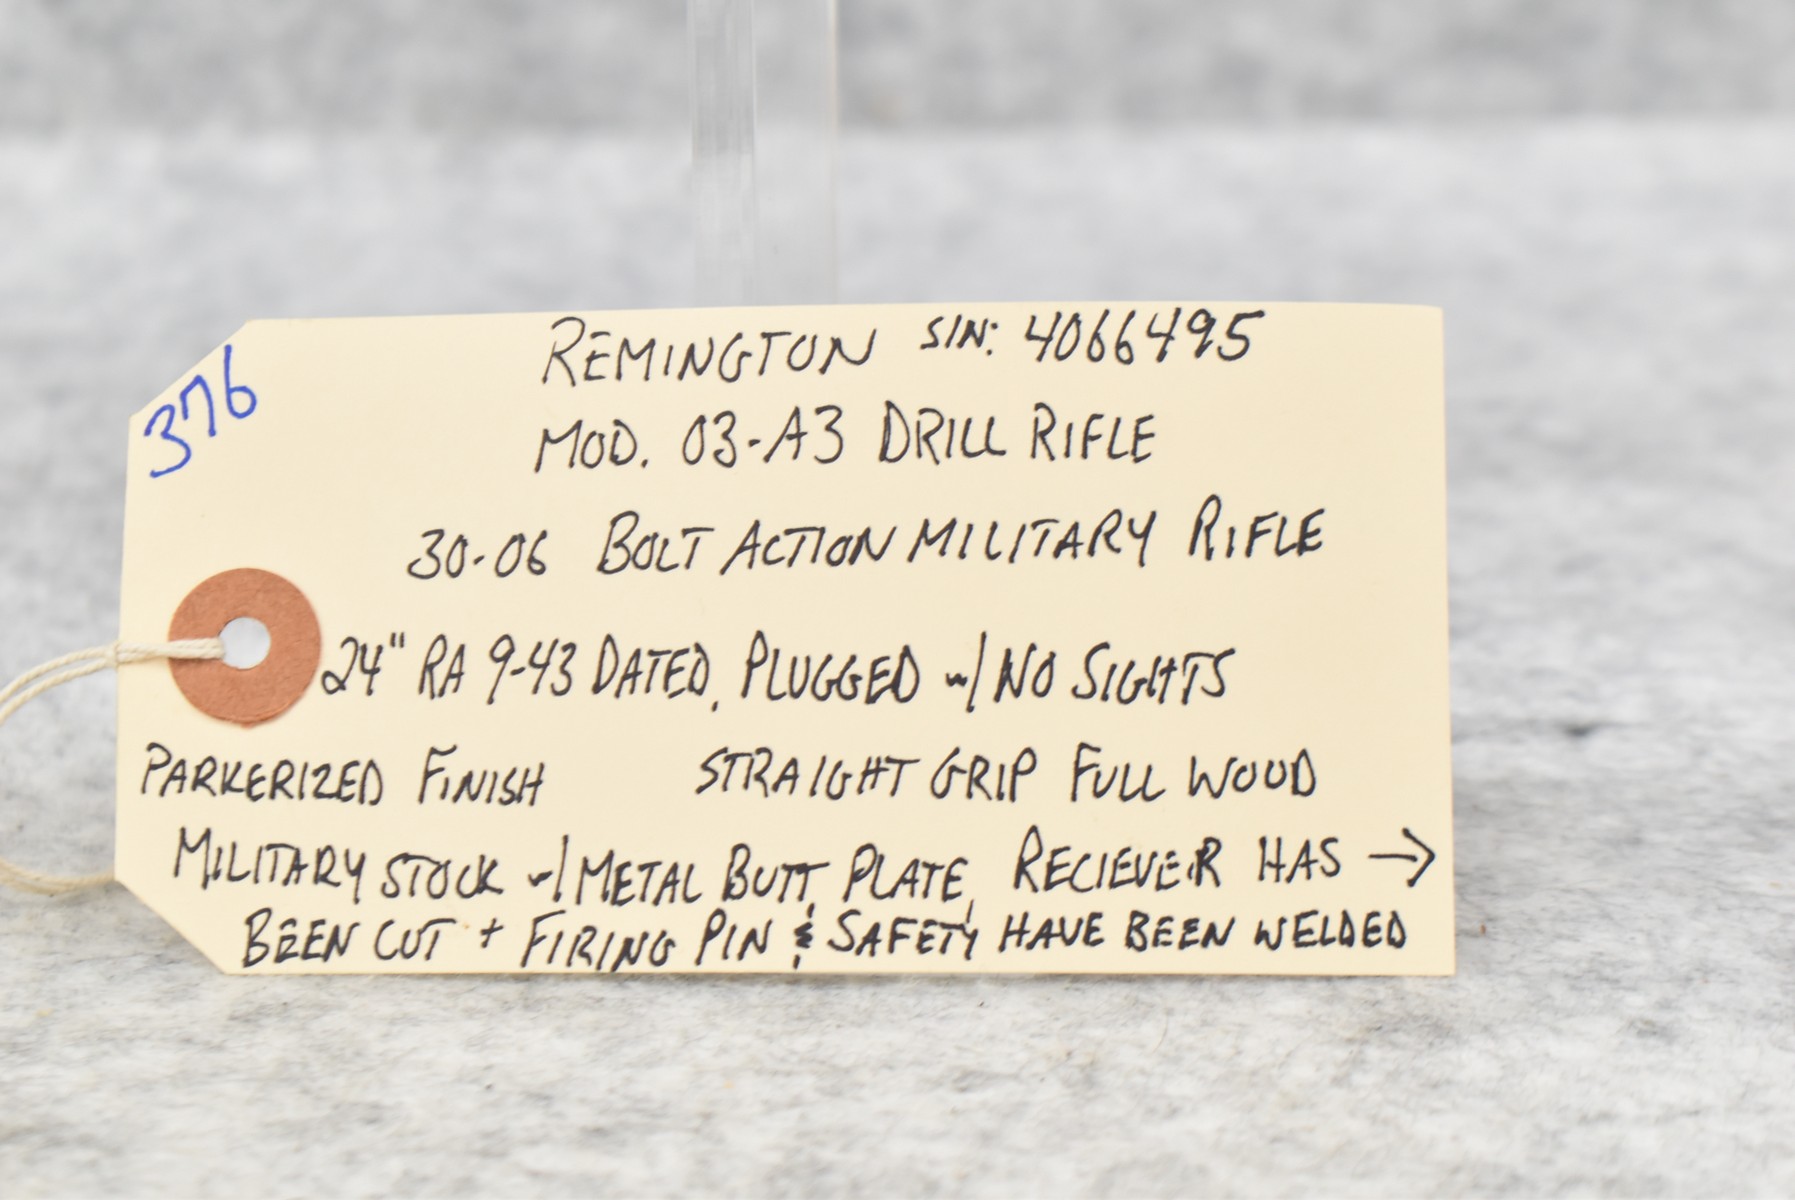 376
REMINGTON S/N: 4066495
MOD. 03-A3 DRILL RIFLE
30-06 BOLT ACTION MILITARY RIFLE
24" RA 9-43 DATED, PLUGGED w/ NO SIGHTS
PARKERIZED FINISH STRAIGHT GRIP FULL WOOD
MILITARY STOCK w/ METAL BUTT PLATE, RECIEVER HAS →
BEEN CUT + FIRING PIN & SAFETY HAVE BEEN WELDED